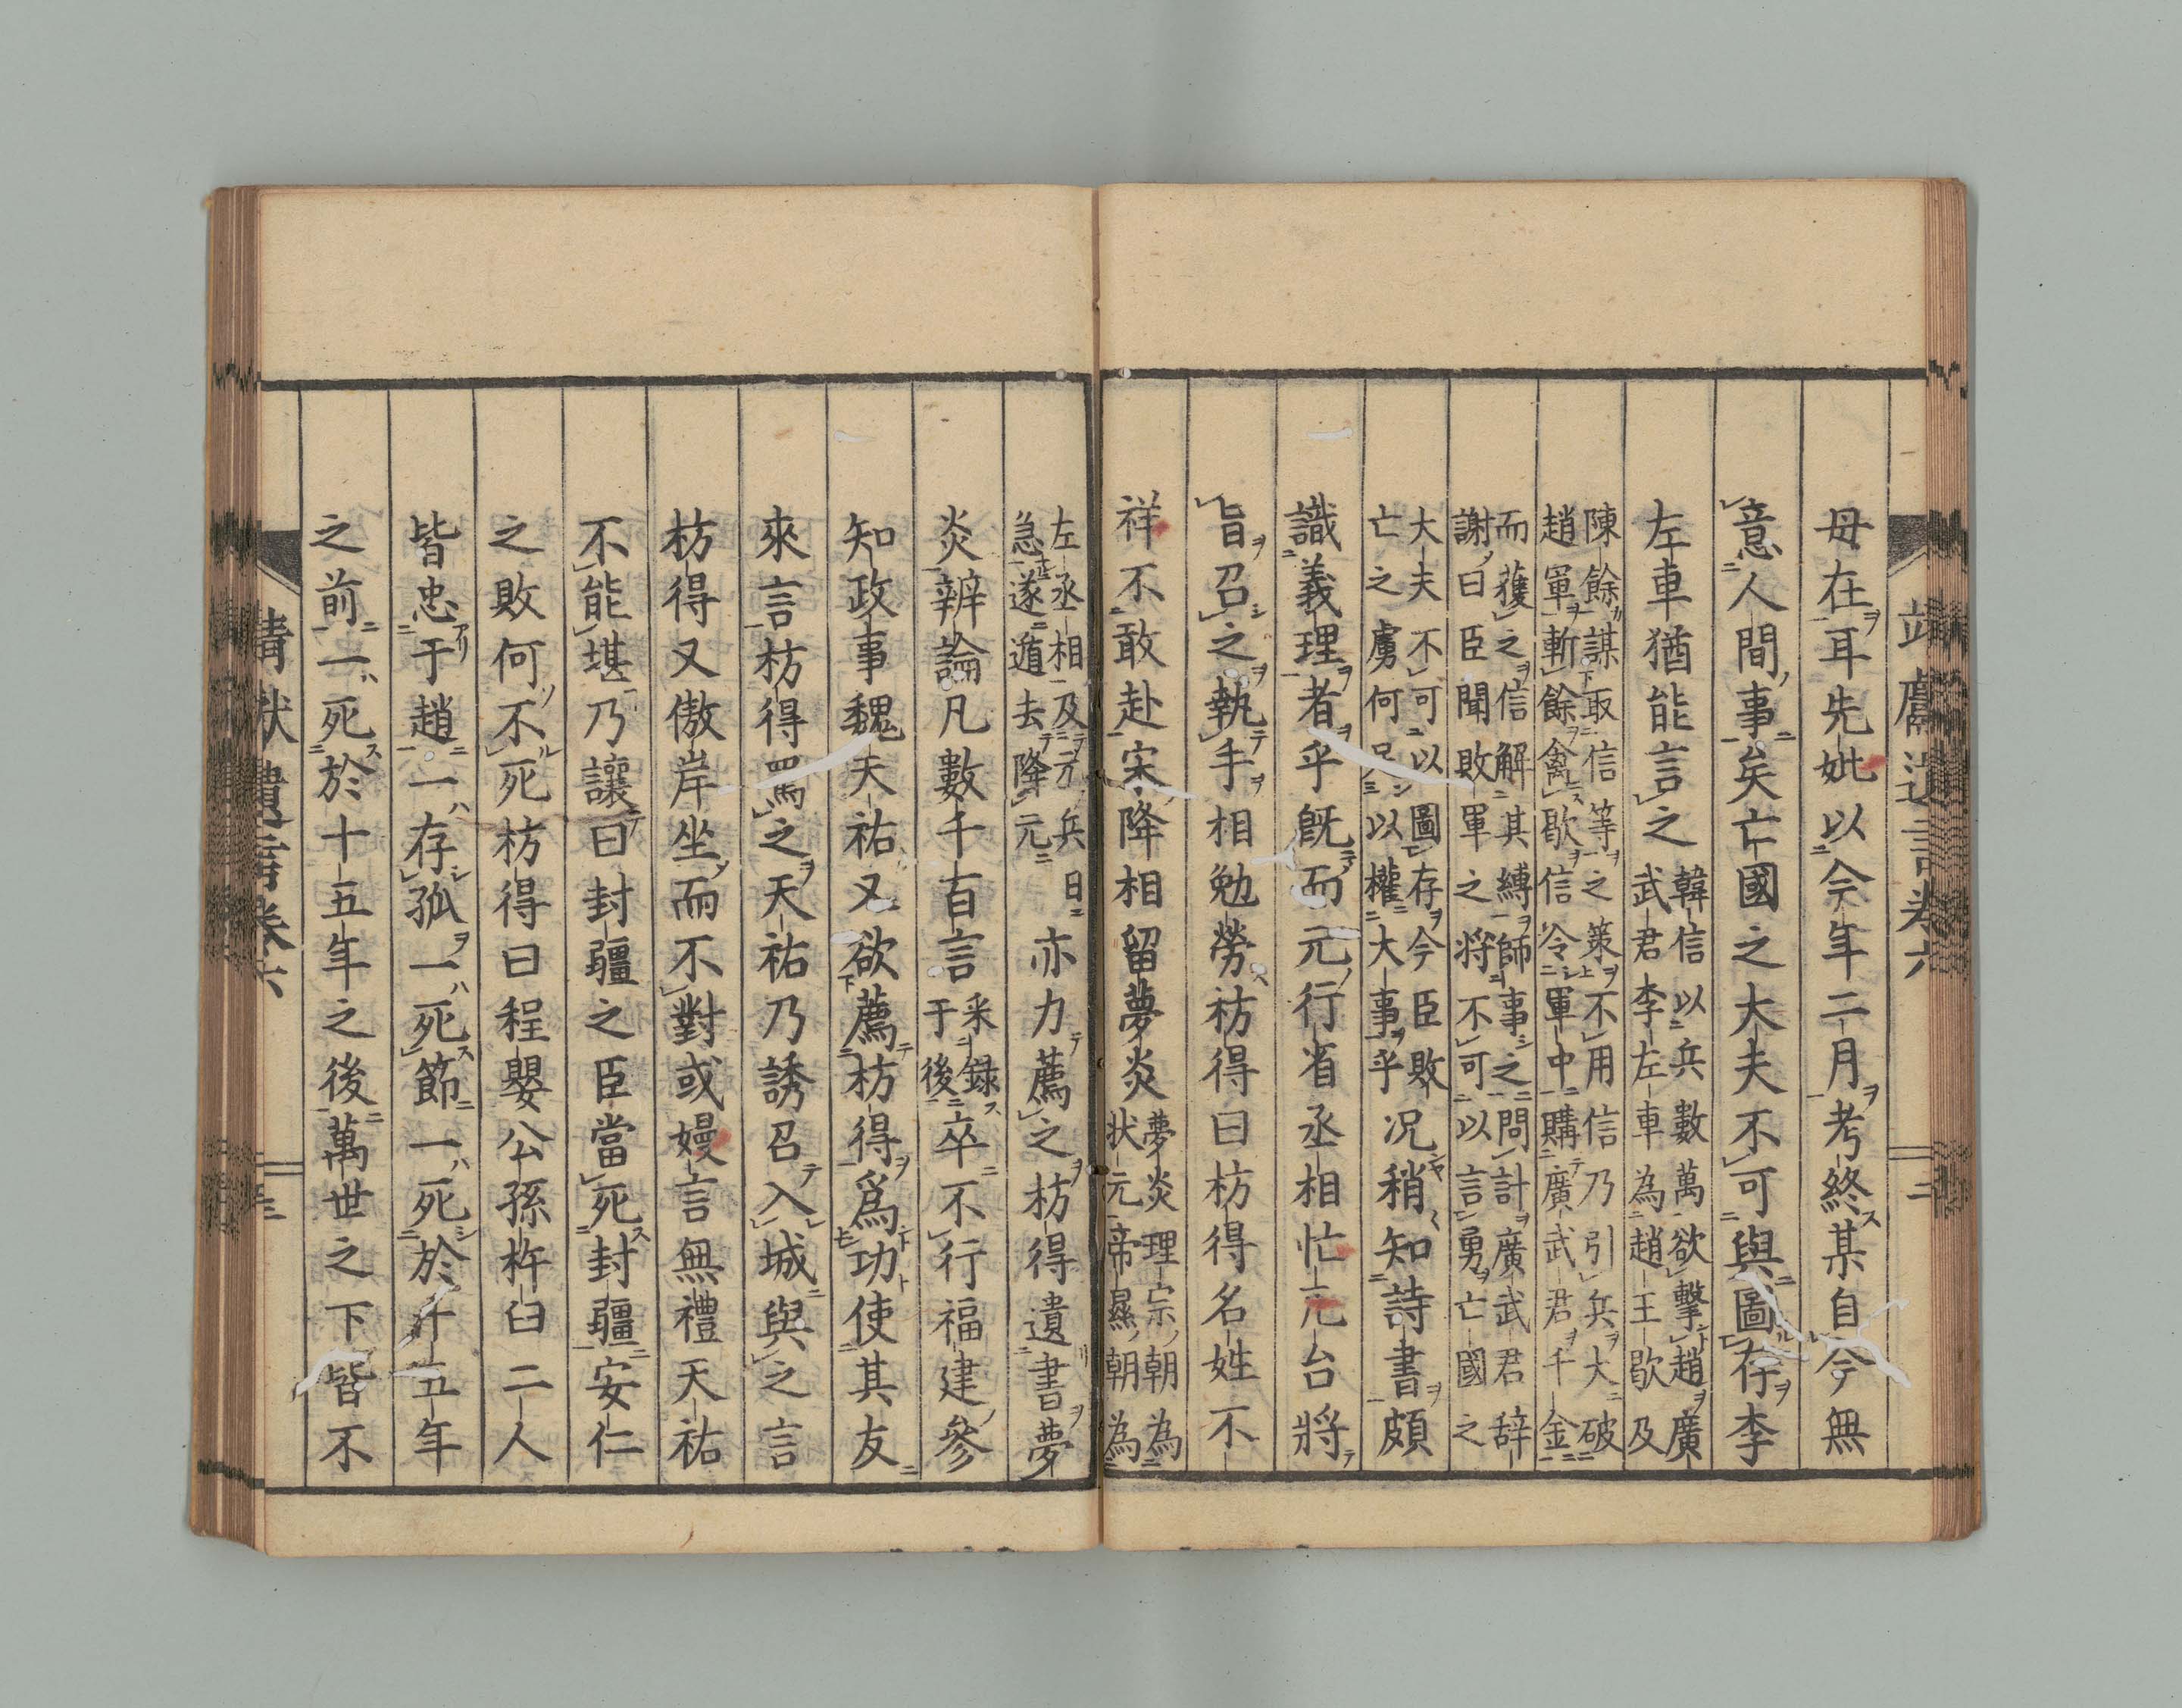 靖獻遺言卷六
二
母在耳先妣以今年二月考終某自今無
意人間事矣亡國之大夫不可與圖存李
左車猶能言之韓信以兵數萬欲擊趙廣
武君李左車為趙王歇及
陳餘謀取信等之策不用信乃引兵大破
趙軍斬餘禽歇信令軍中購廣武君千金
而獲之信解其縛師事之問計廣武君辞
謝曰臣聞敗軍之將不可以言勇亡國之
大夫不可以圖存今臣敗
亡之虜何足以權大事乎况稍知詩書頗
識義理者乎既而元行省丞相忙兀台將
旨召之執手相勉勞枋得曰枋得名姓不
祥不敢赴宋降相留夢炎夢炎理宗朝為
狀元帝㬎朝為
左丞相及元兵日
急遂遁去降元亦力薦之枋得遺書夢
炎辨論凡數千百言采録
于後卒不行福建參
知政事魏天祐又欲薦枋得爲功使其友
來言枋得罵之天祐乃誘召入城與之言
枋得又傲岸坐而不對或嫚言無禮天祐
不能堪乃讓曰封疆之臣當死封疆安仁
之敗何不死枋得曰程嬰公孫杵臼二人
皆忠于趙一存孤一死節一死於十五年
之前一死於十五年之後萬世之下皆不
靖獻遺言卷六
三